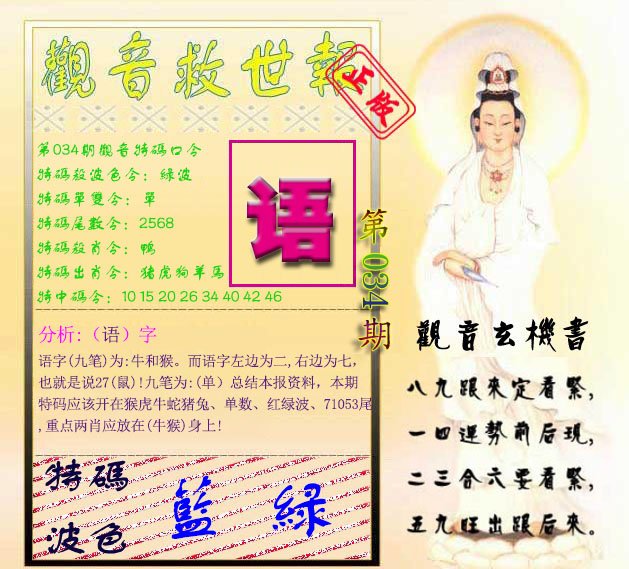 觀音救世報
正版
第034期觀音特碼口令
特碼殺波色令：綠波
特碼單雙令：單
特碼尾數令：2568
特碼殺肖令：鴨
特碼出肖令：猪虎狗羊馬
特中碼令：10 15 20 26 34 40 42 46
语
第034期
分析:（语）字
语字(九笔)为:牛和猴。而语字左边为二,右边为七,
也就是说27(鼠)!九笔为:(单）总结本报资料，本期
特码应该开在猴虎牛蛇猪兔、单数、红绿波、71053尾
,重点两肖应放在(牛猴)身上!
特碼
波色
藍綠
觀音玄機書
八九跟來定看緊,
一四運勢前后現,
二三合六要看緊,
五九旺出跟后來。